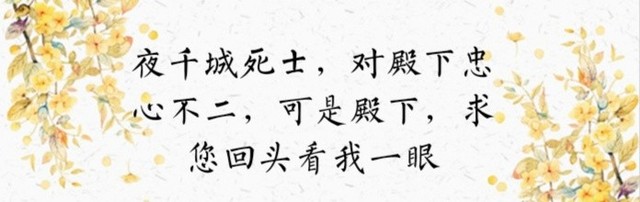 夜千城死士，对殿下忠
心不二，可是殿下，求
您回头看我一眼